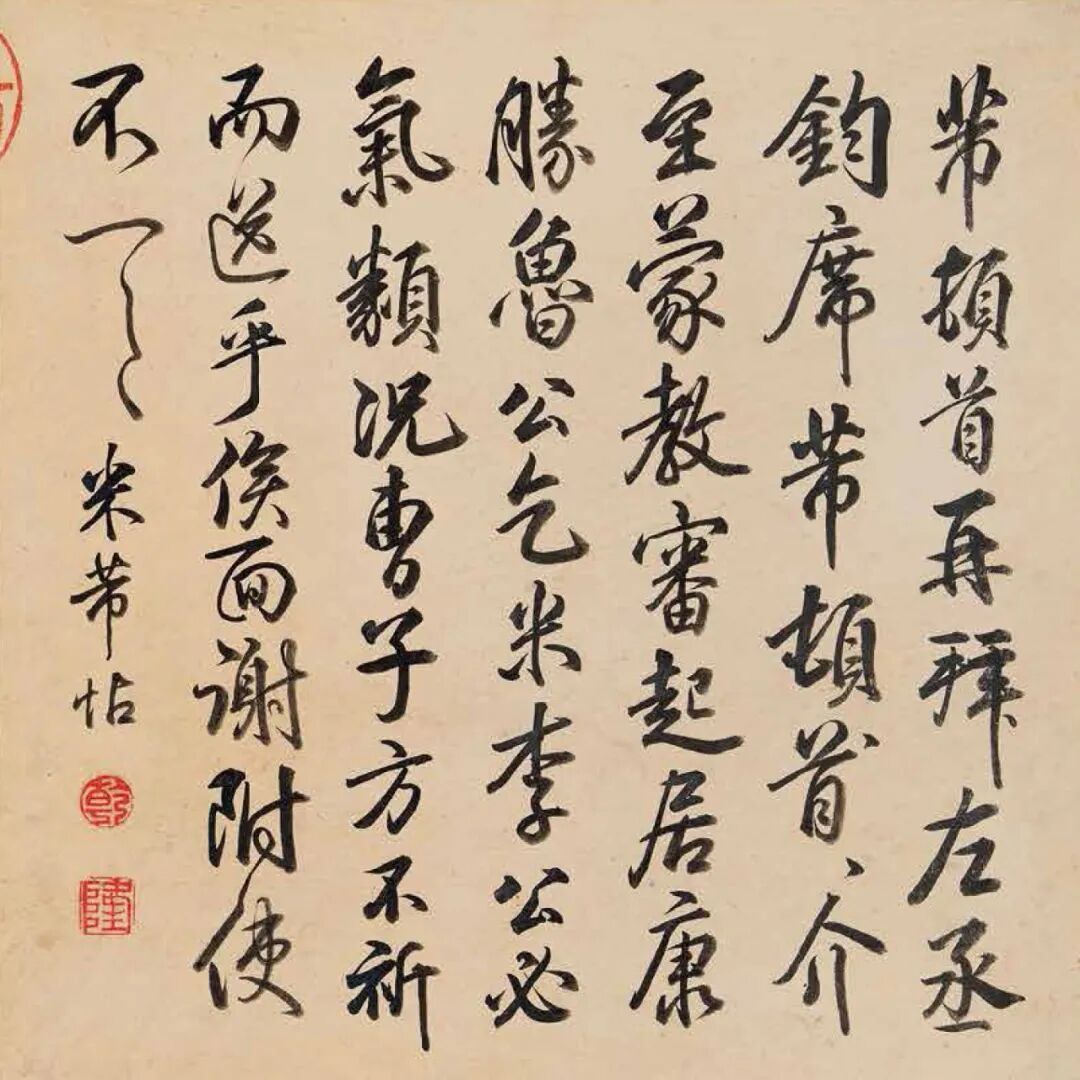 芾頓首再拜左丞
鈞席芾頓首、介
至蒙教審起居康
勝魯公乞米李公必
氣類況曹子方不祈
而送乎俟面謝附使
不一〻 米芾帖
乾
隆